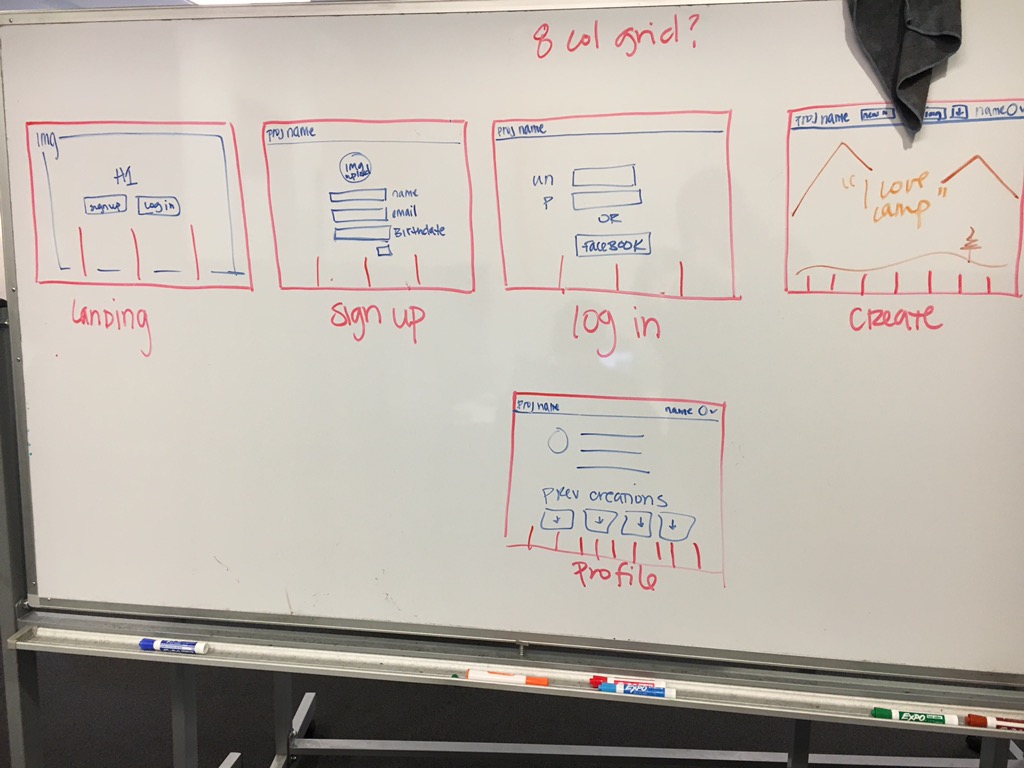 8 col grid?
img
H1
sign up
log in
Landing
Proj name
img
upload
name
email
Birthdate
sign up
Proj name
un
P
OR
FaceBOOK
log in
Proj name
name
"I Love
camp"
create
Proj name
name
prev creations
Profile
EXPO
EXPO